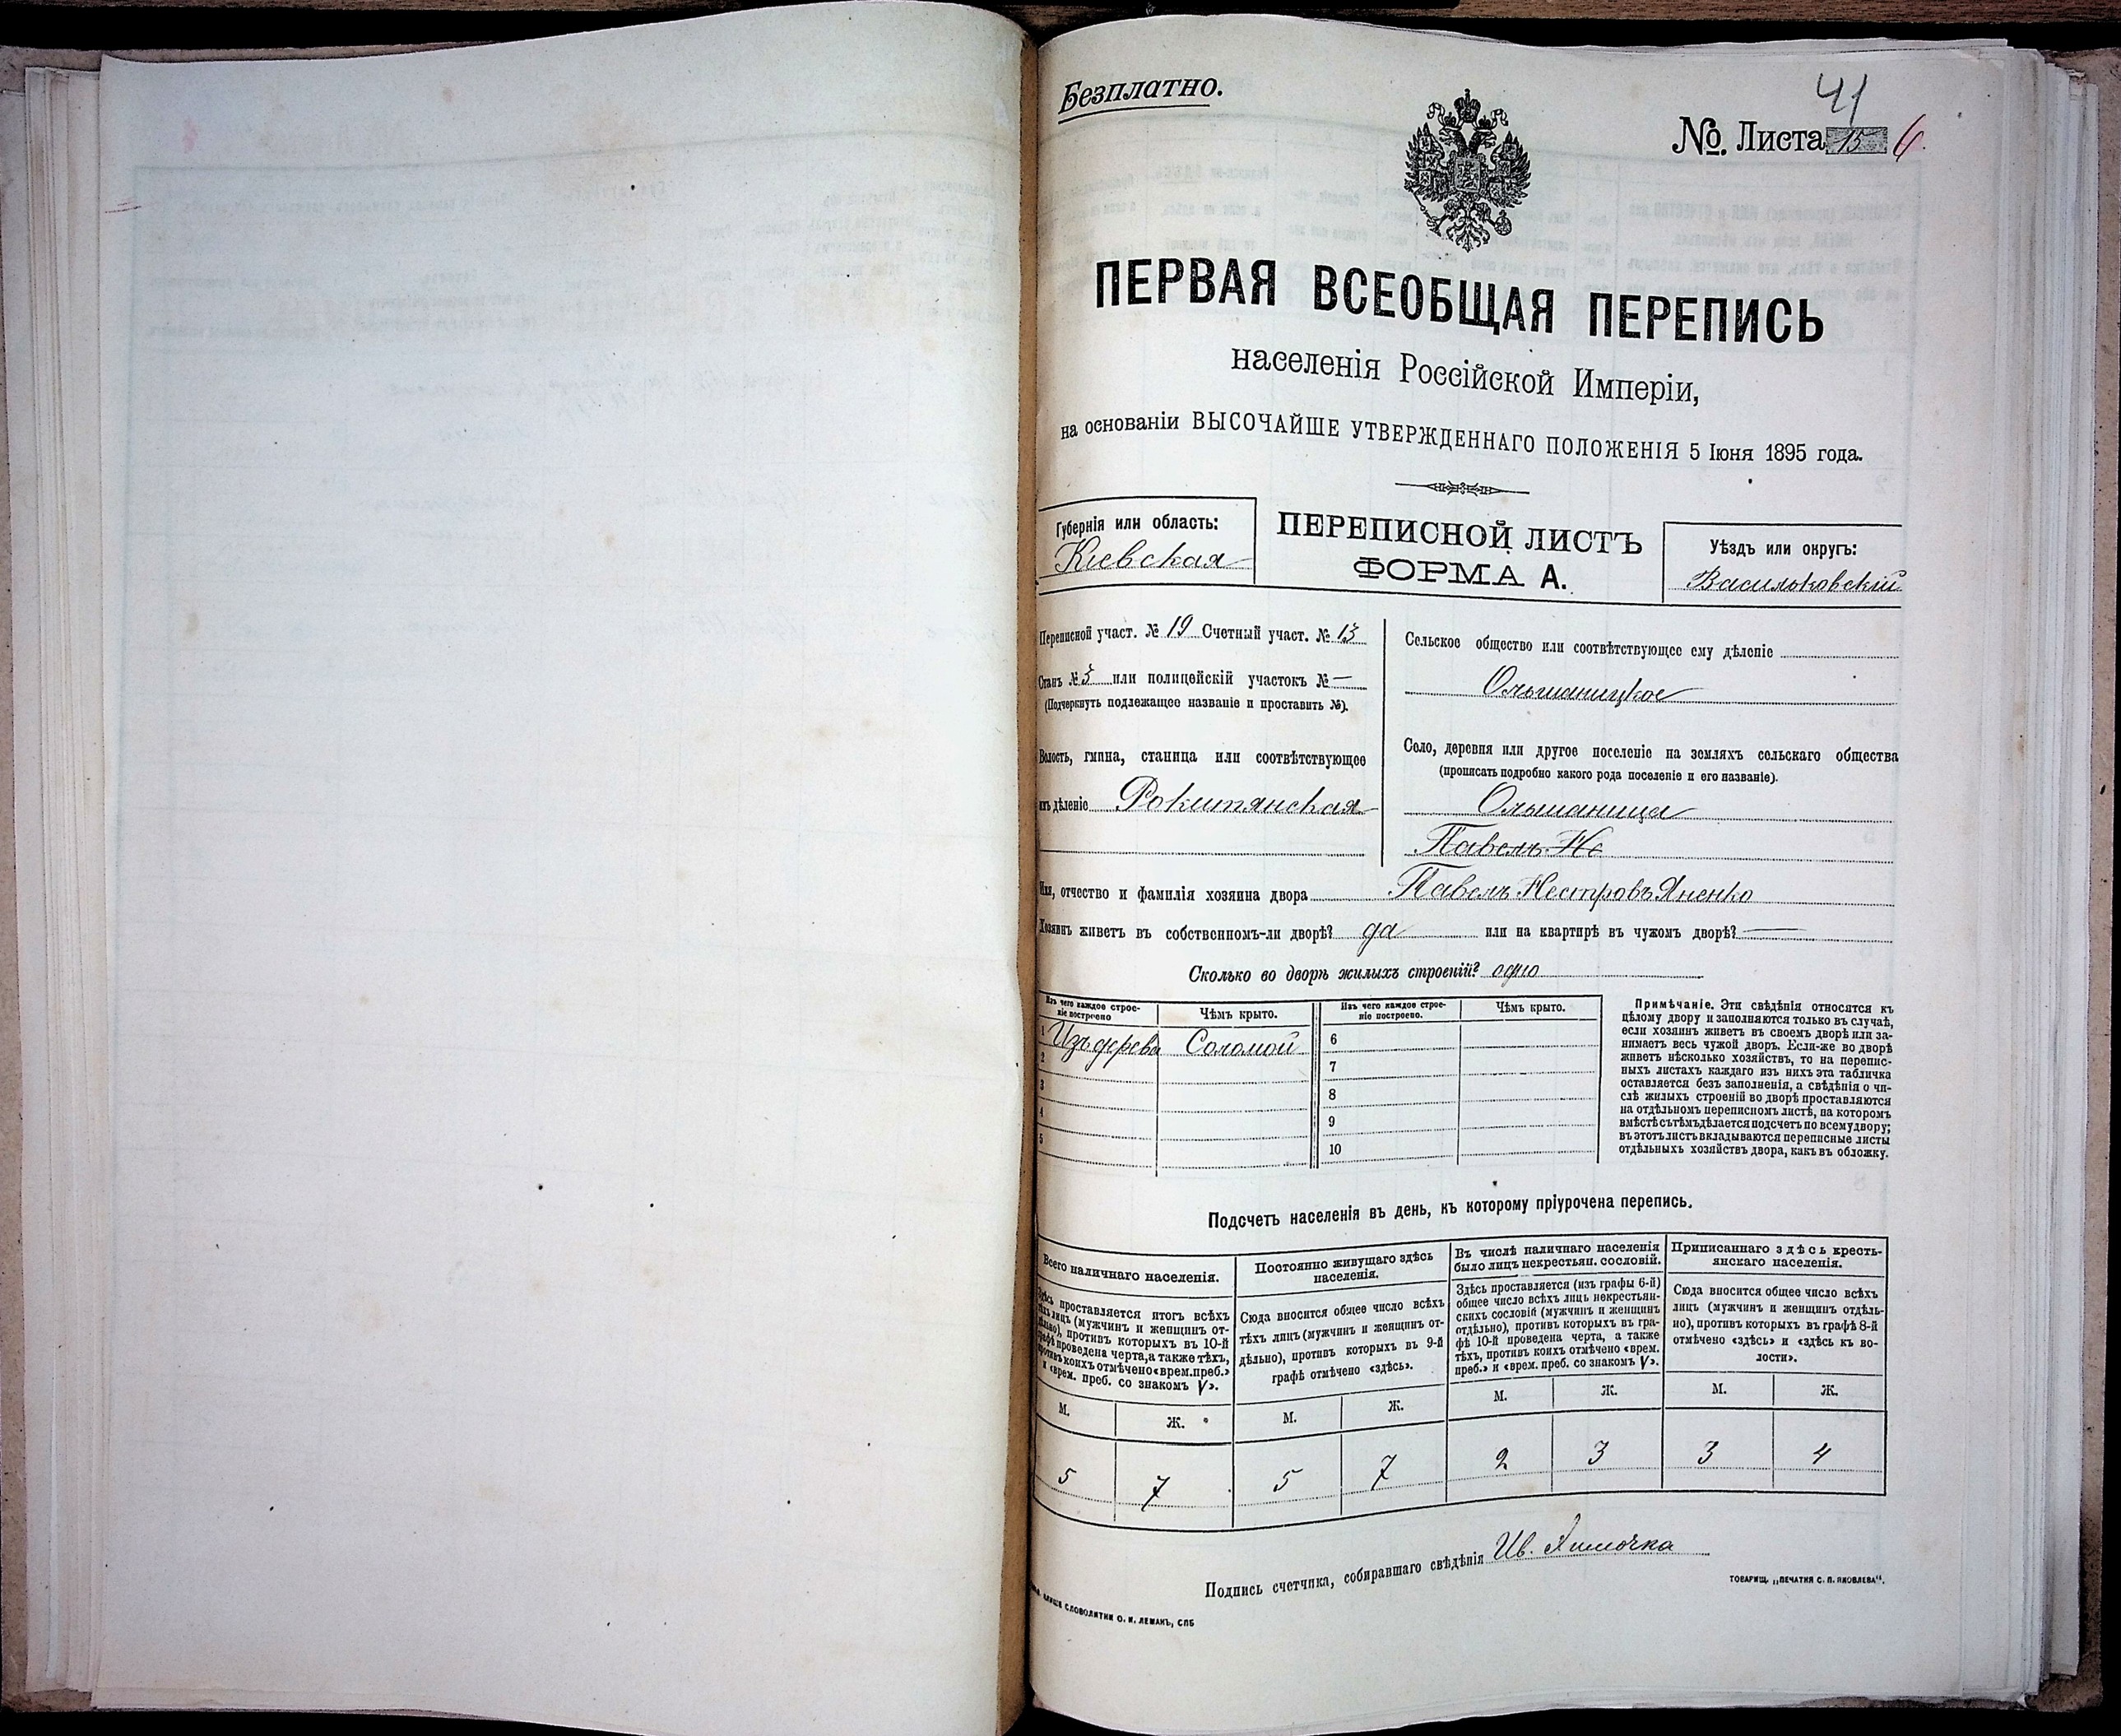 Безплатно.
41
№. Листа 15 6.
ПЕРВАЯ ВСЕОБЩАЯ ПЕРЕПИСЬ
населенія Россійской Имперіи,
на основаніи ВЫСОЧАЙШЕ УТВЕРЖДЕННАГО ПОЛОЖЕНІЯ 5 Іюня 1895 года.
Губернія или область:
Кіевская
ПЕРЕПИСНОЙ ЛИСТЪ
ФОРМА А.
Уѣздъ или округъ:
Васильковскій
Переписной участ. № 19 Счетный участ. № 13
Станъ № 3 или полицейскій участокъ № —
(Подчеркнуть подлежащее названіе и проставить №).
Волость, гмина, станица или соотвѣтствующее
имъ дѣленіе Рокитянская
Сельское общество или соотвѣтствующее ему дѣленіе
Ольшаницкое
Село, деревня или другое поселеніе на земляхъ сельскаго общества
(прописать подробно какого рода поселеніе и его названіе).
Ольшаница
Павелъ Не
Имя, отчество и фамилія хозяина двора Павелъ Нестровъ Яненко
Хозяинъ живетъ въ собственномъ-ли дворѣ? да или на квартирѣ въ чужомъ дворѣ? —
Сколько во дворѣ жилыхъ строеній? одно
Изъ чего каждое строе-
ніе построено
Чѣмъ крыто.
Изъ чего каждое строе-
ніе построено.
Чѣмъ крыто.
1 Изъ дерева Соломой 6
2 7
3 8
4 9
5 10
Примѣчаніе. Эти свѣдѣнія относятся къ
цѣлому двору и заполняются только въ случаѣ,
если хозяинъ живетъ въ своемъ дворѣ или за-
нимаетъ весь чужой дворъ. Если-же во дворѣ
живетъ нѣсколько хозяйствъ, то на перепис-
ныхъ листахъ каждаго изъ нихъ эта табличка
оставляется безъ заполненія, а свѣдѣнія о чи-
слѣ жилыхъ строеній во дворѣ проставляются
на отдѣльномъ переписномъ листѣ, на которомъ
вмѣстѣ съ тѣмъ дѣлается подсчетъ по всему двору;
въ этотъ листъ вкладываются переписные листы
отдѣльныхъ хозяйствъ двора, какъ въ обложку.
Подсчетъ населенія въ день, къ которому пріурочена перепись.
Всего наличнаго населенія.
Здѣсь проставляется итогъ всѣхъ
тѣхъ лицъ (мужчинъ и женщинъ от-
дѣльно), противъ которыхъ въ 10-й
графѣ проведена черта, а также тѣхъ,
противъ коихъ отмѣчено «врем. преб.»
и «врем. преб. со знакомъ V».
Постоянно живущаго здѣсь
населенія.
Сюда вносится общее число всѣхъ
тѣхъ лицъ (мужчинъ и женщинъ от-
дѣльно), противъ которыхъ въ 9-й
графѣ отмѣчено «здѣсь».
Въ числѣ наличнаго населенія
было лицъ некрестьян. сословій.
Здѣсь проставляется (изъ графы 6-й)
общее число всѣхъ лицъ некрестьян-
скихъ сословій (мужчинъ и женщинъ
отдѣльно), противъ которыхъ въ гра-
фѣ 10-й проведена черта, а также
тѣхъ, противъ коихъ отмѣчено «врем.
преб.» и «врем. преб. со знакомъ V».
Приписаннаго здѣсь кресть-
янскаго населенія.
Сюда вносится общее число всѣхъ
лицъ (мужчинъ и женщинъ отдѣль-
но), противъ которыхъ въ графѣ 8-й
отмѣчено «здѣсь» и «здѣсь къ во-
лости».
М. Ж. М. Ж. М. Ж. М. Ж.
5 7 5 7 2 3 3 4
Подпись счетчика, собиравшаго свѣдѣнія Ив.
СЛОВОЛИТНИ О. И. ЛЕМАНЪ, СПБ
ТОВАРИЩ. „ПЕЧАТНЯ С. П. ЯКОВЛЕВА“.